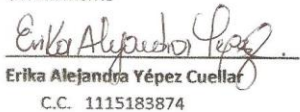 Erika Alejandra Yepez
Erika Alejandra Yépez Cuellar
C.C. 1115183874